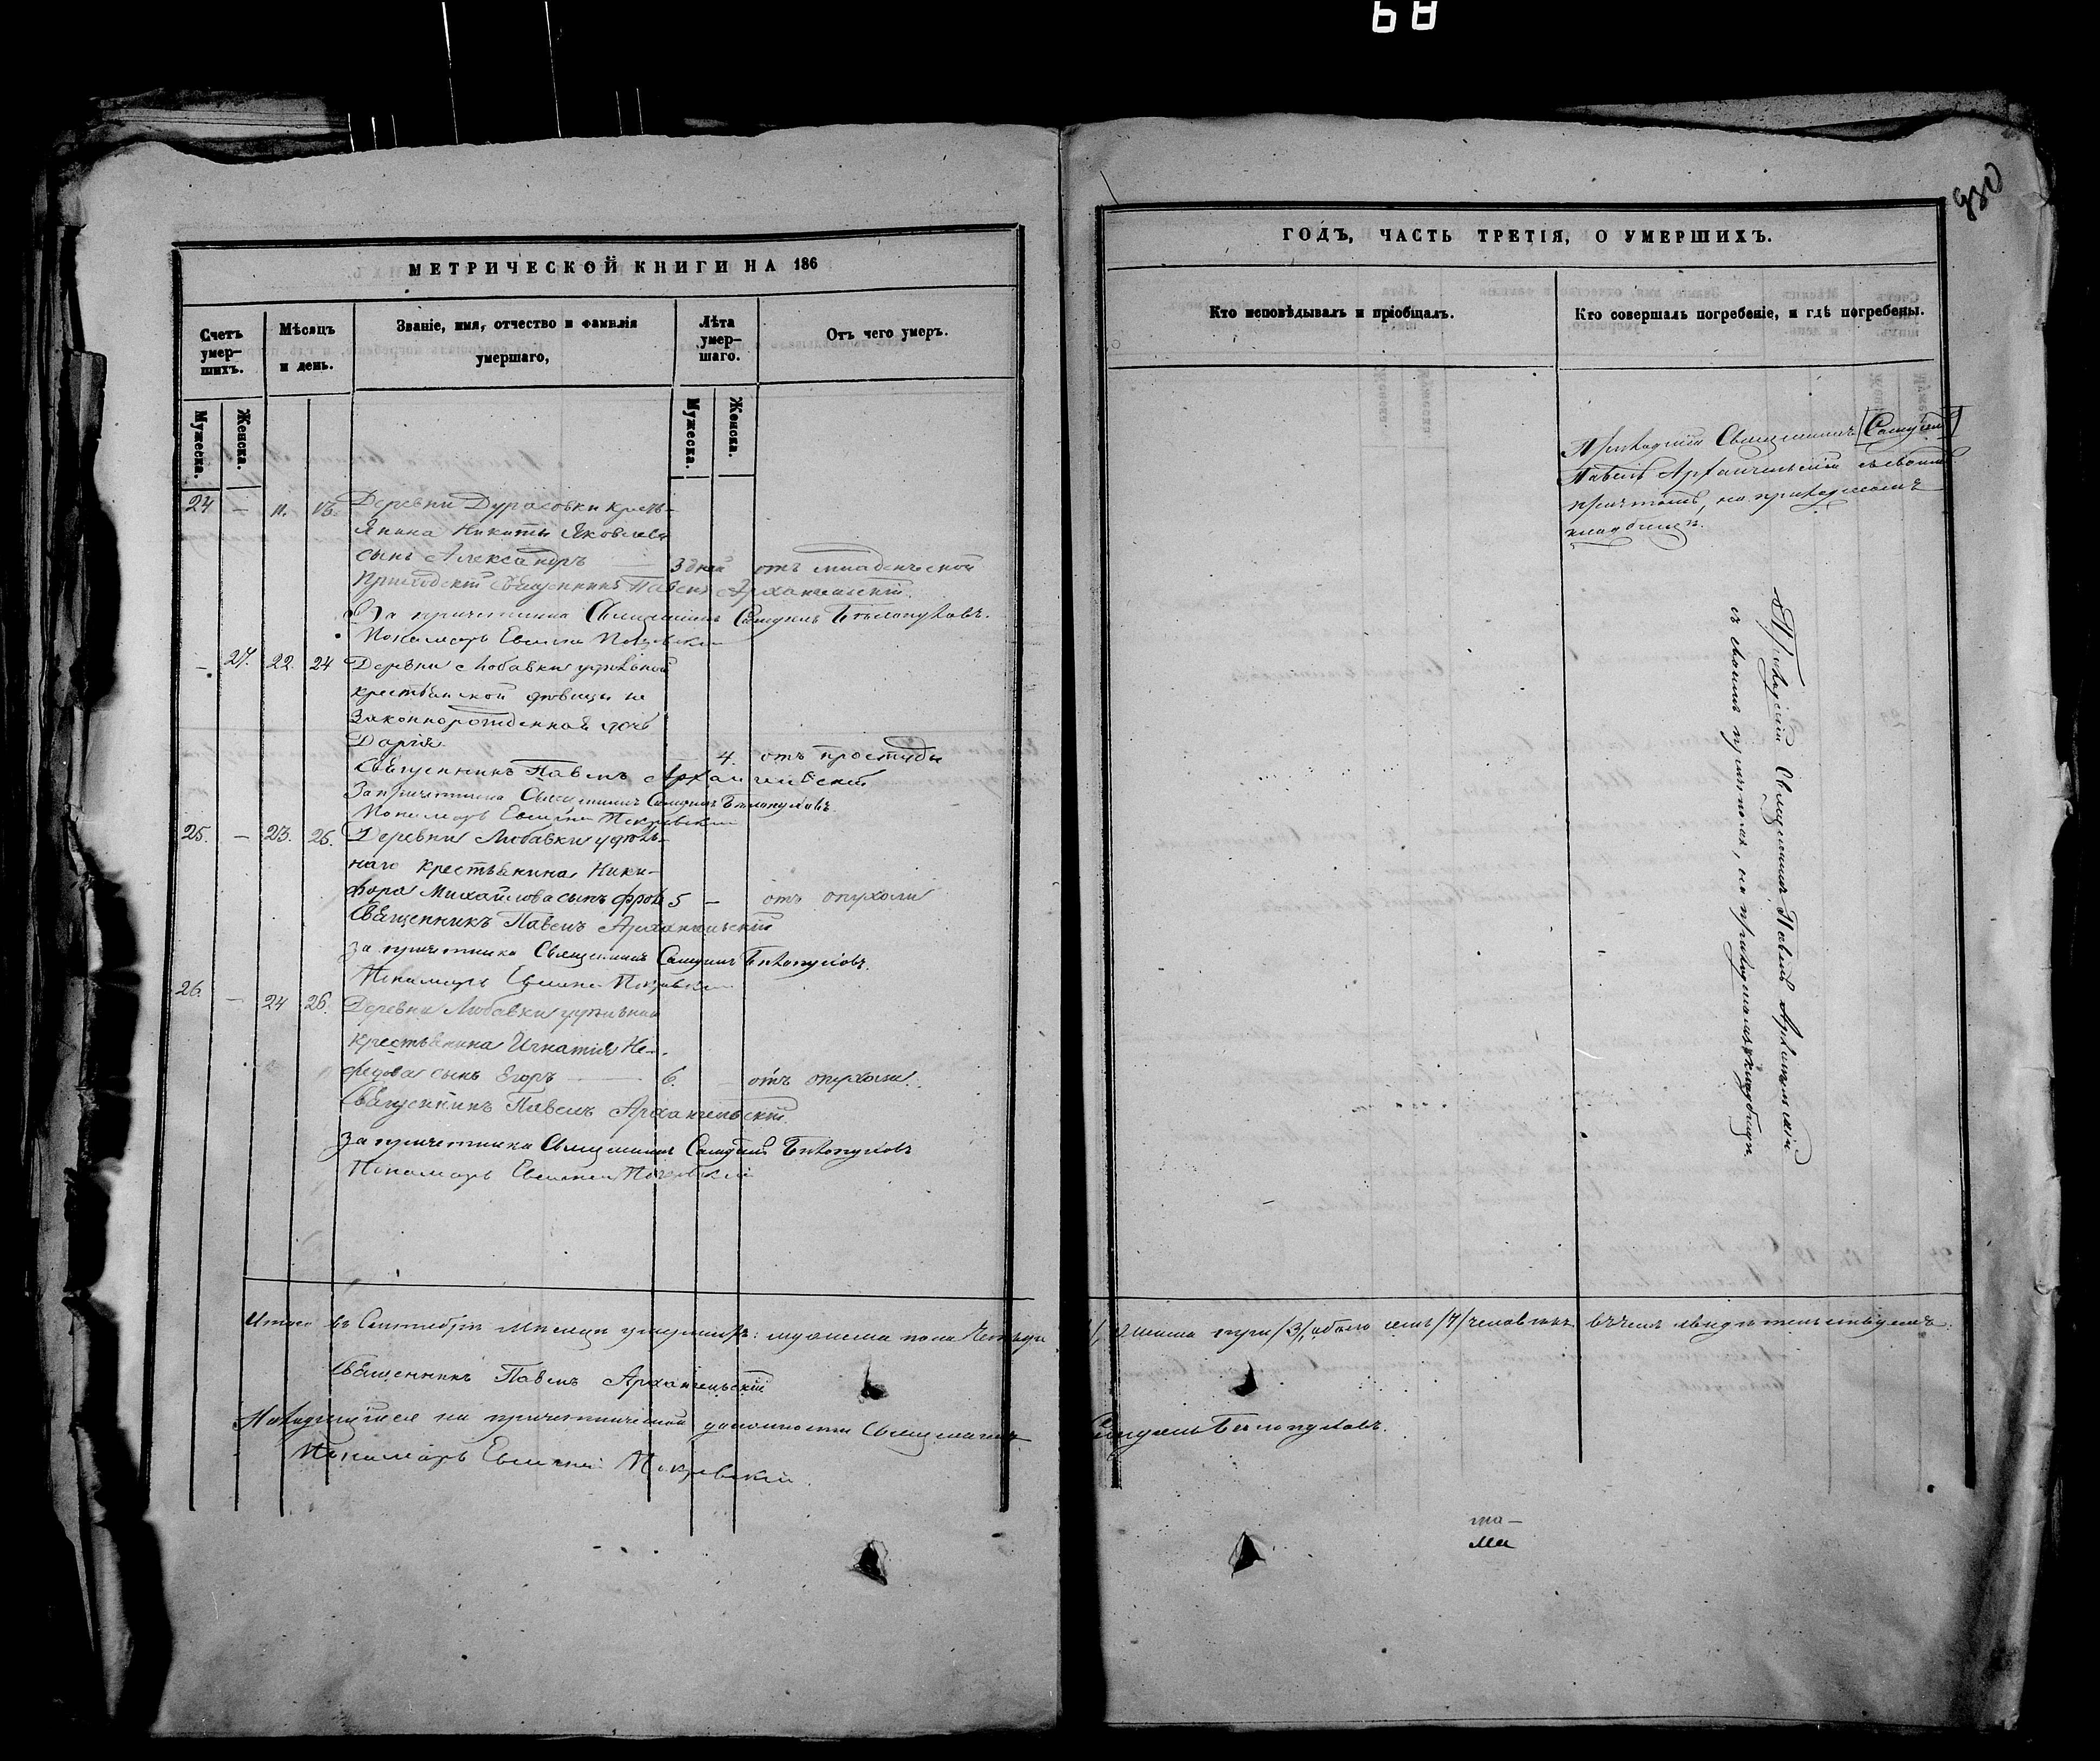 68
930
МЕТРИЧЕСКОЙ КНИГИ НА 186
Счетъ умер-шихъ.
Мѣсяцъ и день.
Званіе, имя, отчество и фамилія умершаго,
Лѣта умер-шаго.
Отъ чего умеръ.
Мужеска.
Женска.
Мужеска.
Женска.
24 — 11. 13. Деревни Дурасовки кресть-
янина Никиты Яковлева
сынъ Александръ — 3 дней отъ младенческой
Приходскій Священникъ Павелъ Архангельскій.
За причетника Священникъ Самуилъ Бѣлопуховъ.
Пономарь Евгеній Покровскій
— 27. 22. 24 Деревни Любавки удѣльной
крестьянской дѣвицы не
законнорожденная дочь
Дарія. 4. отъ простуды
Священникъ Павелъ Архангельскій
За причетника Священникъ Самуилъ Бѣлопуховъ.
Пономарь Евгеній Покровскій
25. — 23. 25. Деревни Любавки удѣль-
наго крестьянина Ники-
фора Михайлова сынъ Фролъ 5 — отъ опухоли
Священникъ Павелъ Архангельскій
За причетника Священникъ Самуилъ Бѣлопуховъ.
Пономарь Евгеній Покровскій
26. — 24 26. Деревни Любавки удѣльнаго
крестьянина Игнатія Не-
федова сынъ Егоръ — 6. — отъ опухоли.
Священникъ Павелъ Архангельскій.
За причетника Священникъ Самуилъ Бѣлопуховъ
Пономарь Евгеній Покровскій
Итого въ Сентябрѣ мѣсяцѣ умершихъ: мужеска пола четыре
Священникъ Павелъ Архангельскій
Находящійся на причетнической должности Священникъ
Пономарь Евгеній Покровскій.
ГОДЪ, ЧАСТЬ ТРЕТІЯ, О УМЕРШИХЪ.
Кто исповѣдывалъ и пріобщалъ.
Кто совершалъ погребеніе, и гдѣ погребены.
Приходскій Священникъ [Самуилъ]
Павелъ Архангельскій съ своимъ
причтомъ, на приходскомъ
кладбищѣ.
Приходскій Священникъ Павелъ Архангельскій
съ своимъ причтомъ, на приходскомъ кладбищѣ.
женска три /3/, обоего семь /7/ человѣкъ въ чемъ свидѣтельствуемъ:
Самуилъ Бѣлопуховъ.